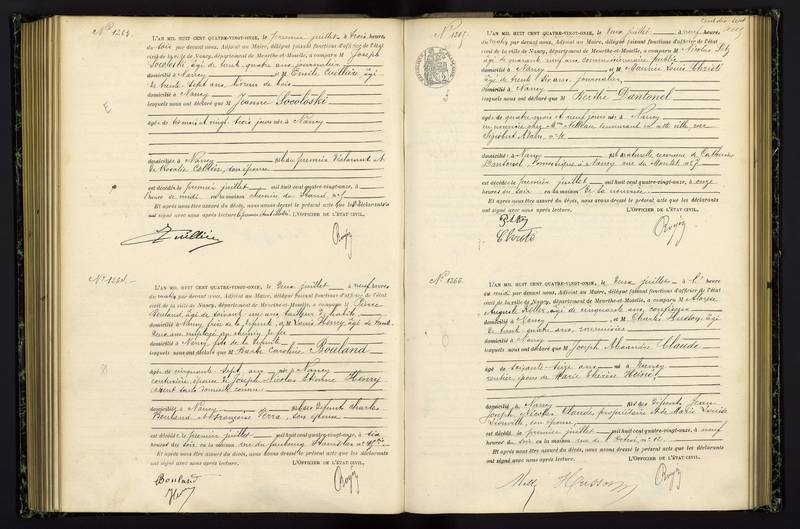 N° 1263.
L'AN MIL HUIT CENT QUATRE-VINGT-ONZE, le premier juillet à trois heures
du soir par devant nous, Adjoint au Maire, délégué faisant fonctions d'officier de l'état
civil de la ville de Nancy, département de Meurthe-et-Moselle, a comparu M Joseph
Socoloski, âgé de trente quatre ans journalier
domicilié à Nancy et M Emile Cuillière âgé
de trente sept ans
domicilié à Nancy
lesquels nous ont déclaré que M Jeanne Socoloski
âgée de dix mois et vingt trois jours née à Nancy
domiciliée à Nancy fille du premier déclarant et
de Rosalie Collin, son épouse
est décédée le premier juillet mil huit cent quatre-vingt-onze, à
heures de midi en la maison chemin du
Et après nous être assuré du décès, nous avons dressé le présent acte que les déclarants
ont signé avec nous après lecture. L'OFFICIER DE L'ÉTAT CIVIL,
Cuillière
N° 1264.
L'AN MIL HUIT CENT QUATRE-VINGT-ONZE, le deux juillet à neuf heures
du matin par devant nous, Adjoint au Maire, délégué faisant fonctions d'officier de l'état
civil de la ville de Nancy, département de Meurthe-et-Moselle, a comparu M Pierre
Bouland, âgé de soixante ans, tailleur d'habits
domicilié à Nancy, frère de la défunte, et M Louis Henry, âgé de trente
deux ans employé au chemin de fer
domicilié à Nancy, fils de la défunte
lesquels nous ont déclaré que M Barbe Caroline Bouland
âgée de cinquante sept ans née à Nancy
couturière, épouse de Joseph Nicolas Etienne Henry
domiciliée à Nancy fille des défunts Charles
Bouland et Françoise Verra, son épouse
est décédée le premier juillet mil huit cent quatre-vingt-onze, à six
heures du soir en la maison rue du faubourg Stanislas n°
Et après nous être assuré du décès, nous avons dressé le présent acte que les déclarants
ont signé avec nous après lecture. L'OFFICIER DE L'ÉTAT CIVIL,
Bouland
N° 1265.
L'AN MIL HUIT CENT QUATRE-VINGT-ONZE, le deux juillet à neuf heures
du matin par devant nous, Adjoint au Maire, délégué faisant fonctions d'officier de l'état
civil de la ville de Nancy, département de Meurthe-et-Moselle, a comparu M Nicolas
âgé de quarante neuf ans commissionnaire public
domicilié à Nancy et M Maurice Louis Christé
âgé de trente six ans, journalier
domicilié à Nancy
lesquels nous ont déclaré que M Berthe Dantonel
âgée de quatre mois et neuf jours née à Nancy
en nourrice chez Mme demeurant en cette ville, rue
domiciliée à Nancy fille naturelle reconnue de Catherine
Dantonel, domestique à Nancy rue du Montet n° 67
est décédée le premier juillet mil huit cent quatre-vingt-onze, à onze
heures du soir en la maison de la nourrice
Et après nous être assuré du décès, nous avons dressé le présent acte que les déclarants
ont signé avec nous après lecture. L'OFFICIER DE L'ÉTAT CIVIL,
Christé
N° 1266.
L'AN MIL HUIT CENT QUATRE-VINGT-ONZE, le deux juillet à
du midi par devant nous, Adjoint au Maire, délégué faisant fonctions d'officier de l'état
civil de la ville de Nancy, département de Meurthe-et-Moselle, a comparu M
Auguste âgé de cinquante ans, confiseur
domicilié à Nancy et M Charles Husson, âgé
de trente quatre ans,
domicilié à Nancy
lesquels nous ont déclaré que M Joseph Alexandre Claude
âgé de soixante seize ans né à Nancy
rentier, époux de Marie Thérèse
domicilié à Nancy fils des défunts Jean
Joseph Nicolas Claude, propriétaire et de Marie Louise
son épouse
est décédé le premier juillet mil huit cent quatre-vingt-onze, à neuf
heures du soir en la maison rue de n° 12
Et après nous être assuré du décès, nous avons dressé le présent acte que les déclarants
ont signé avec nous après lecture. L'OFFICIER DE L'ÉTAT CIVIL,
Husson